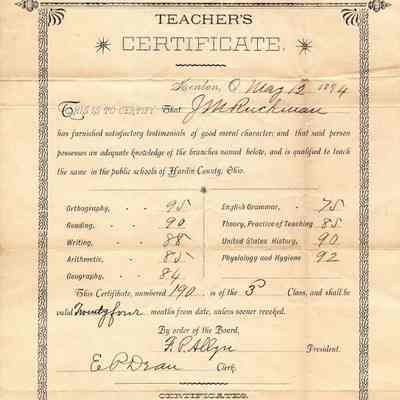 TEACHER'S
CERTIFICATE.
Kenton, O. May 12 1894
THIS IS TO CERTIFY That J M Ruckman
has furnished satisfactory testimonials of good moral character; and that said person
possesses an adequate knowledge of the branches named below, and is qualified to teach
the same in the public schools of Hardin County, Ohio.
Orthography, - - 95 English Grammar, - 75
Reading, - - 90 Theory, Practice of Teaching 85
Writing, - - 88 United States History, - 90
Arithmetic, - - 85 Physiology and Hygiene 92
Geography, - - 84
This Certificate, numbered 190 is of the 3d Class, and shall be
valid Twenty four months from date, unless sooner revoked.
By order of the Board,
President.
Clerk.
CERTIFICATES.